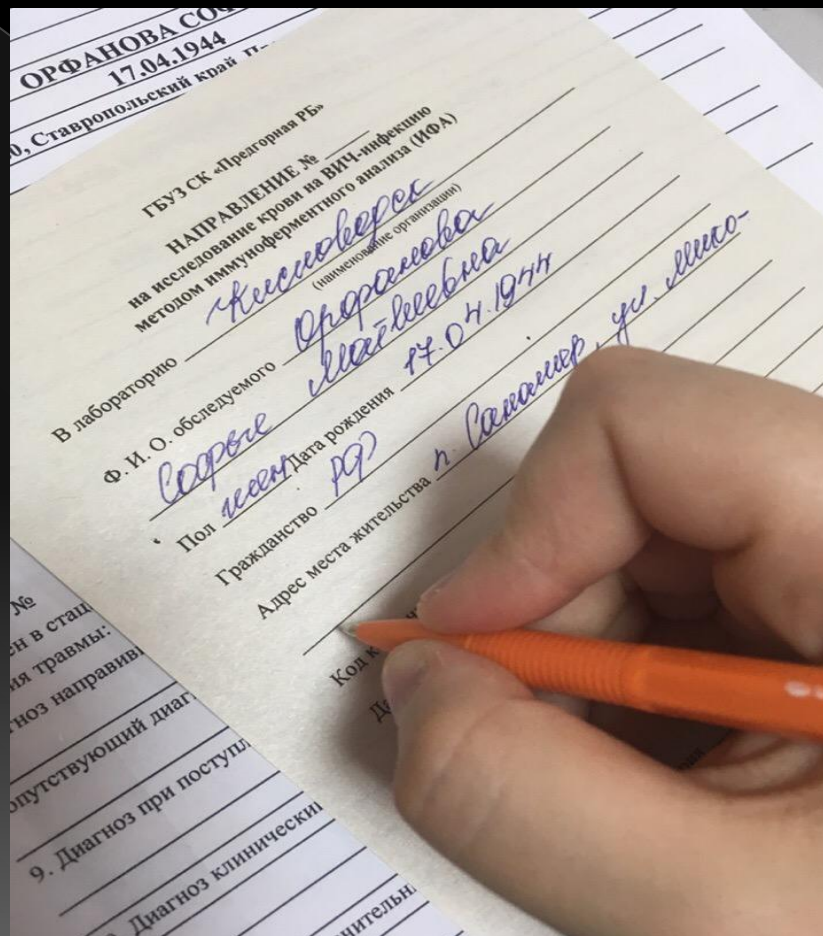 ОРФАНОВА СО
17.04.1944
0, Ставропольский край, П
ГБУЗ СК «Предгорная РБ»
НАПРАВЛЕНИЕ №
на исследование крови на ВИЧ-инфекцию
методом иммуноферментного анализа (ИФА)
В лабораторию Кисловодск
(наименование организации)
Ф. И. О. обследуемого Орфанова
Софья Матвеевна
Пол жен Дата рождения 17.04.1944
Гражданство РФ
Адрес места жительства п. Санамер, ул. Мико-
Код к
Да
№
ен в стац
ия травмы:
гноз направивш
опутствующий диаг
9. Диагноз при поступл
Диагноз клинически
чительн